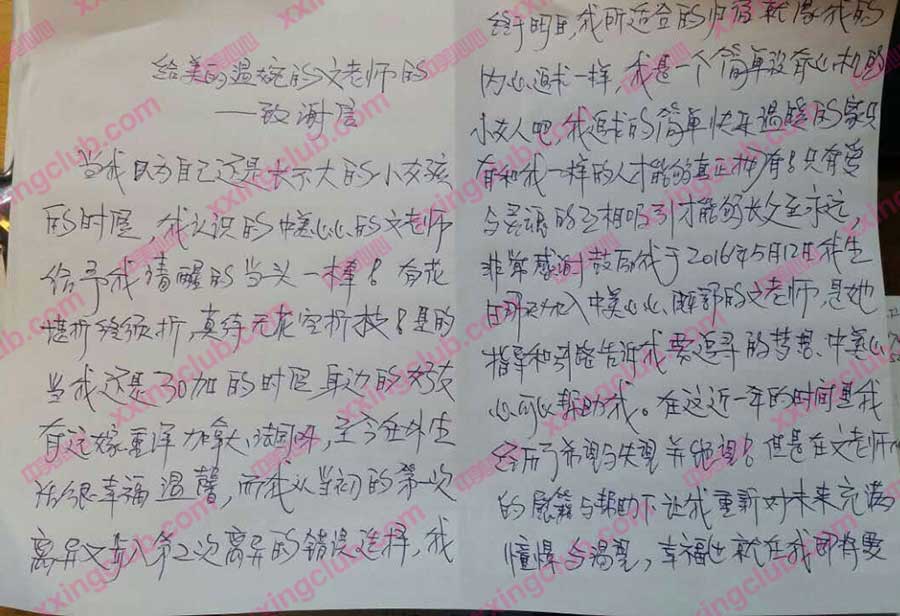 给美的温婉的文老师的
——致谢信
当我因为自己还是长不大的小女孩
的时候,我认识的中美心心的文老师
给予我清醒的当头一棒!有花
堪折终须折,真待无花空折枝!是的
当我还是30加的时候身边的好友
有远嫁重洋加拿大、法国的,至今在外生
活很幸福温馨,而我从当初的第一次
离异又步入第2次离异的错误选择,我
终于明白,我所适合的归宿就像我的
内心追求一样,我是一个简单没有心机的
小女人吧,我追求的简单快乐温暖的家只
有和我一样的人才能够真正拥有!只有爱
与灵魂的互相吸引才能够长久至永远,
非常感谢鼓励我于2016年5月12日我生
日那天加入中美心心、解郁的文老师,是她
指导和引路告诉我要追寻的梦想、中美心
心可以帮助我。在这近一年的时间里我
经历了希望与失望并绝望!但是在文老师
的鼓舞与帮助下让我重新对未来充满
憧憬与渴望,幸福也就在我即将要
xxingclub.com